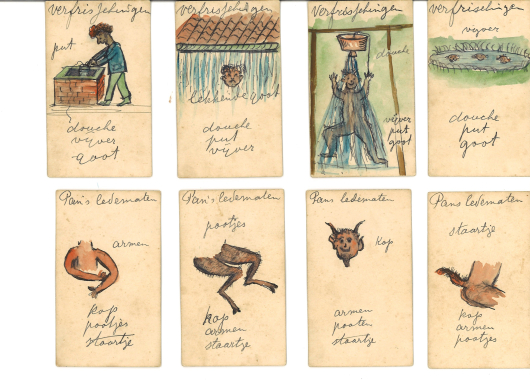 verfrisschingen
put
douche
vijver
goot
verfrisschingen
lekkende goot
douche
put
vijver
verfrisschingen
douche
vijver
put
goot
verfrisschingen
vijver
douche
put
goot
Pan's ledematen
armen
kop
pootjes
staartje
Pan's ledematen
pootjes
kop
armen
staartje
Pans ledematen
kop
armen
pooten
staartje
Pans ledematen
staartje
kop
armen
pootjes